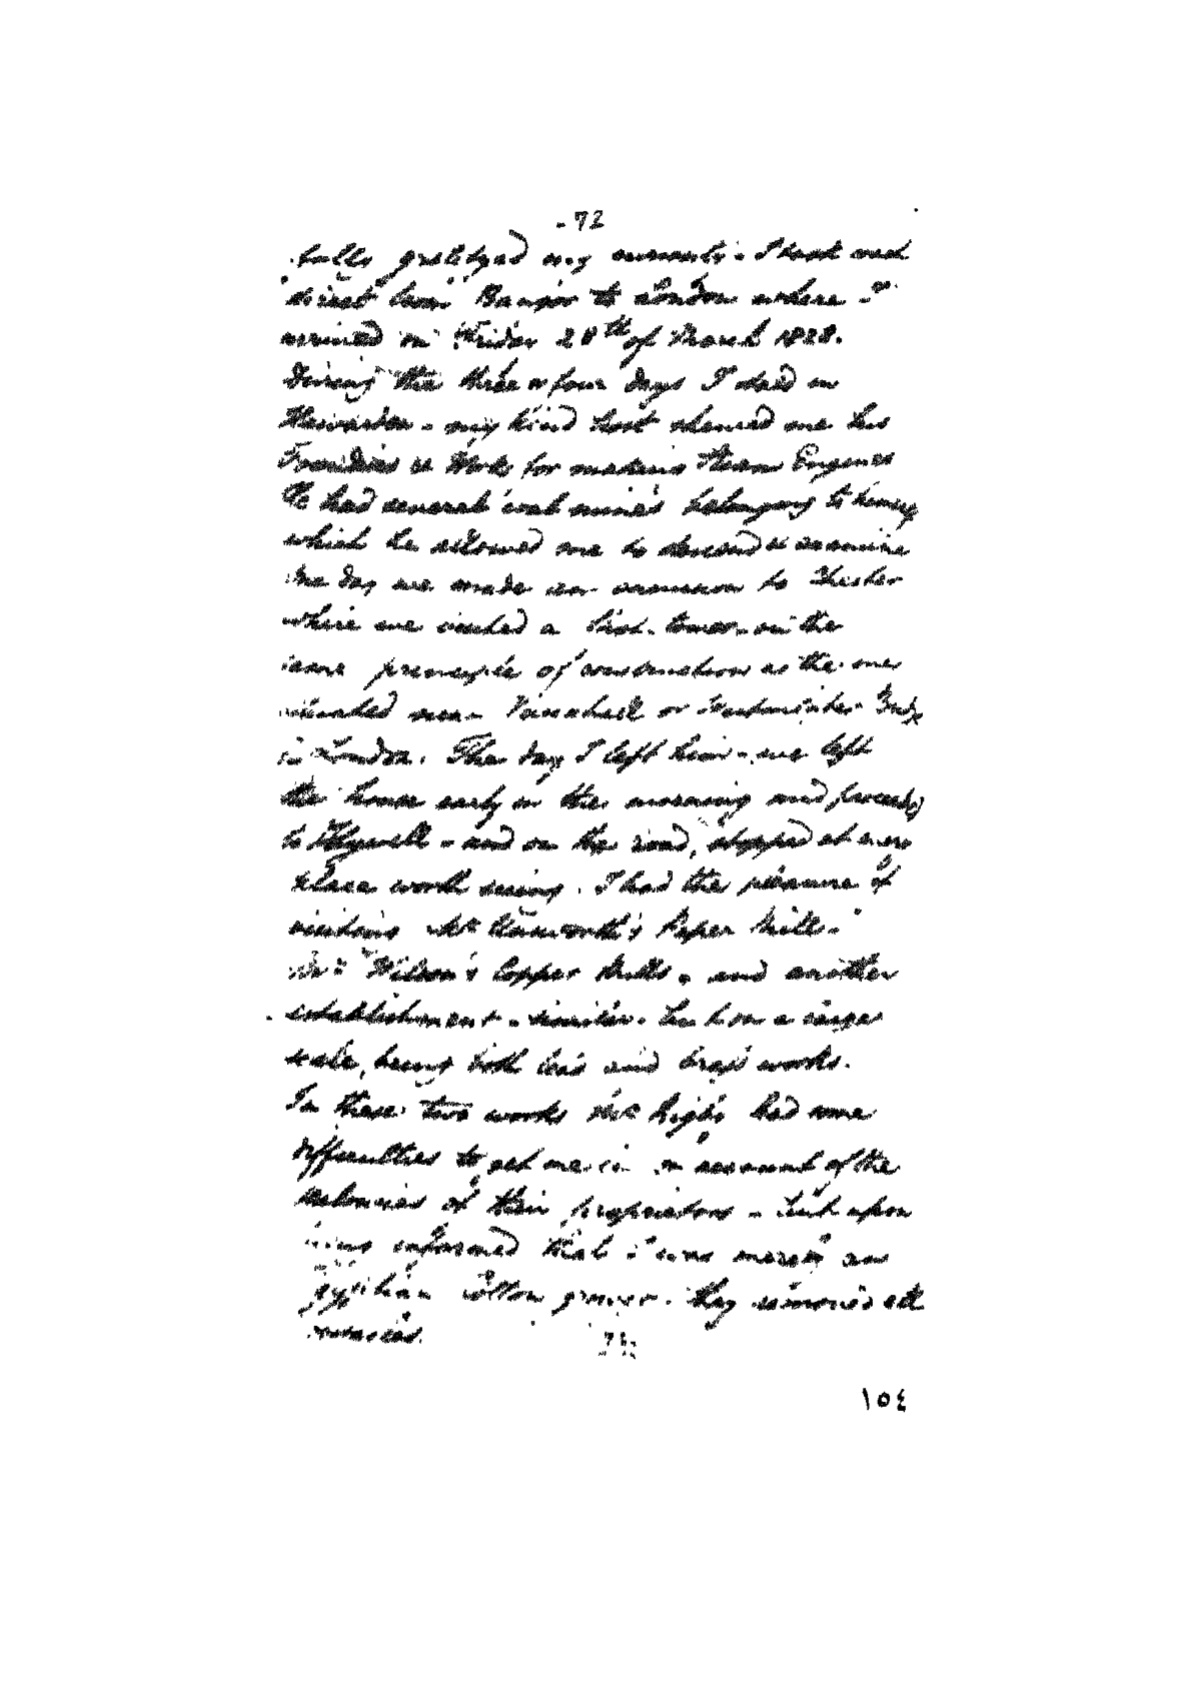 - 72
fully gratifyed my curiosity. I took coach
direct from Bangor to London where I
arrived on Friday 28th of March 1828.
During the three or four days I staid in
Hawarden - my kind host shewed me his
Foundries & Works for making Steam Engines
He had several coal mines belonging to himself
which he allowed me to descend & examine
One day we made an excursion to Chester
where we visited a Shot-tower on the
same principle of construction as the one
situated near Vauxhall or Westminster Bridge
in London. The day I left him - we left
the house early in the morning and proceeded
to Holywell - and on the road, stopped at every
place worth seeing. I had the pleasure of
visiting Mr Paper Mill -
Mr Wilson's Copper Mills - and another
establishment - similar - but on a larger
scale, being both lead and brass works.
In these two works Mr had some
difficulties to get me in on account of the
jealousies of their proprietors - but upon
being informed that I was merely an
Egyptian Cotton grower - they removed all

73
١٥٤